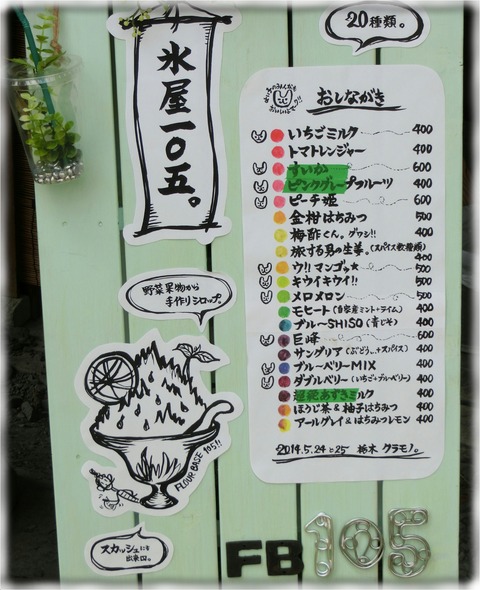 氷屋一〇五。
20種類。
おしながき
いちごミルク 400
トマトレンジャー 400
すいか 600
ピンクグレープフルーツ 400
ピーチ姫 600
金柑はちみつ 500
梅酢くん。グワシ!! 400
旅する男の生姜。(スパイス数種類) 400
ウ!!マンゴゥ★ 500
キウイキウイ!! 500
メロメロン 500
モヒート(自家産ミント+ライム) 400
ブルーSHISO(青じそ) 400
巨峰 400
サングリア(ぶどう...+スパイス) 400
ブルーベリーMIX 400
ダブルベリー(いちご+ブルーベリー) 400
あずきミルク 400
ほうじ茶&柚子はちみつ 400
アールグレイ&はちみつレモン 400
2014.5.24と25 栃木 クラモノ。
野菜果物から
手作りシロップ。
FLOUR BASE 105!!
スカッシュにも
出来□。
FB105